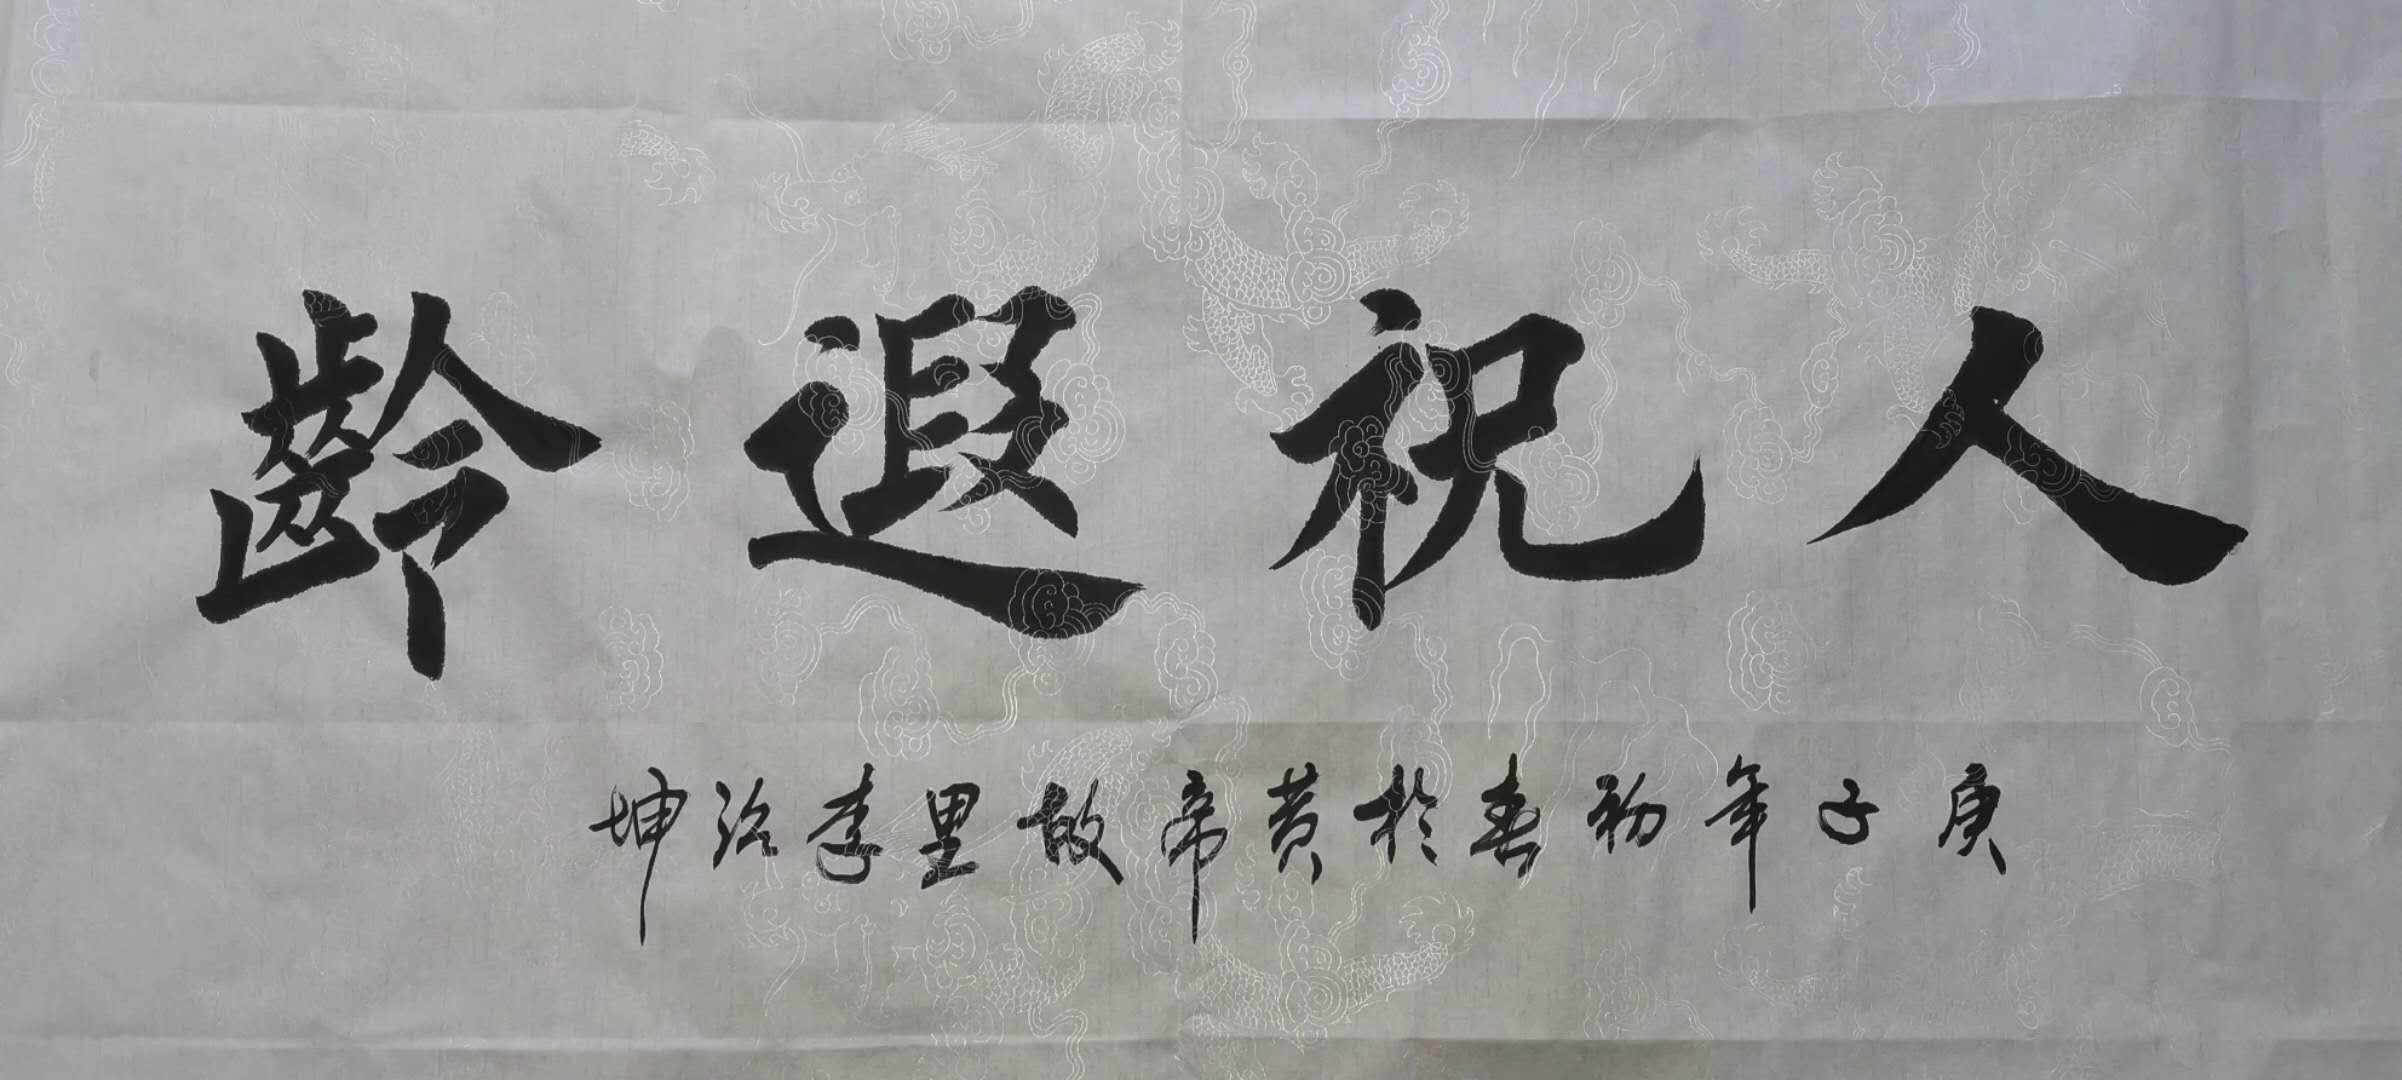 人祝遐齡
庚子年初春於黄帝故里李治坤